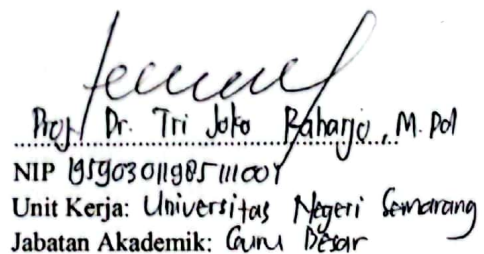 Prof Dr. Tri Joko Raharjo, M.Pd
NIP 195903011985111001
Unit Kerja: Universitas Negeri Semarang
Jabatan Akademik: Guru Besar